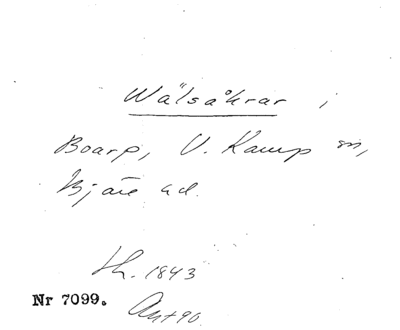 Wälsåkrar i
Boarp, V. Karup sn,
Bjäre hd.
th. 1843
Nr 7099.